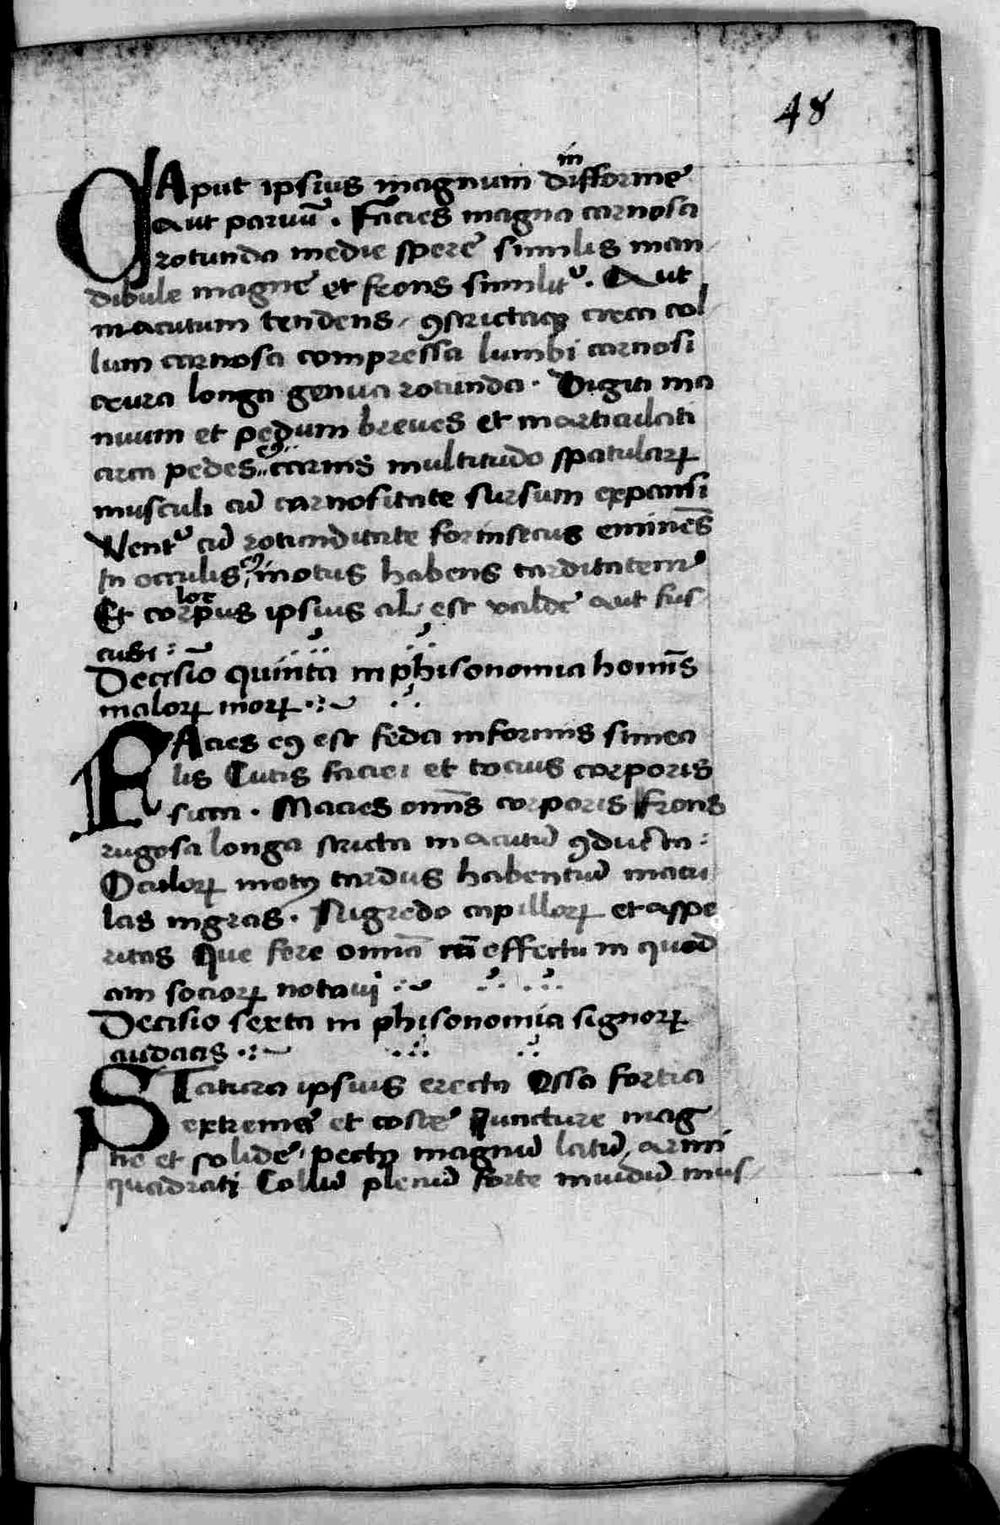 48
CAput ipsius magnum in difforme
aut paruū . Facies magna carnosa
rotunda medie spere similis man
dibule magne et frons similit᷒ . Aut
in acutum tendens, ꝯstrictaqꝫ circa col
lum carnosa compressa lumbi carnosi
crura longa genua rotunda . Digiti ma
nuum et pedum breues et inarticulati
circa pedes eiꝰ carnis multitudo spatularꝝ
musculi cū carnositate sursum expansi
Vent᷒ cū rotunditate forinsecus eminēs
In occulis motus habens tarditatem
Et corpus ipsius al est valde aut fus
cusi :~
Decisio quinta in phisonomia homīs
malorꝝ morꝝ .:~
FAcies eiꝰ est feda informis simea
lis Cutis faciei et tocius corporis
sicca . Macies omīs corporis Frons
rugosa longa stricta in acutū ꝯducta :
Oculorꝝ motꝰ tardus habentiū macu
las nigras . Nigredo capillorꝝ et aspe
ritas Que fere omīa cū effectu in quod
am sociorꝝ notaui :~
Decisio sexta in phisonomia signorꝝ
audacis .:~
STatura ipsius erecta Ossa fortia
extreme et coste Iuncture mag
ne et solide, pectꝰ magnū latū, armi
quadrati Collū plenū forte nudū mus